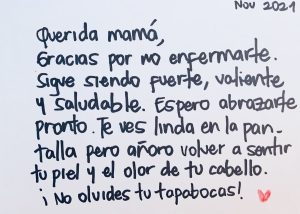 Nov 2021
Querida mamá,
Gracias por no enfermarte.
Sigue siendo fuerte, valiente
y saludable. Espero abrazarte
pronto. Te ves linda en la pan-
talla pero añoro volver a sentir
tu piel y el olor de tu cabello.
¡No olvides tu tapabocas!